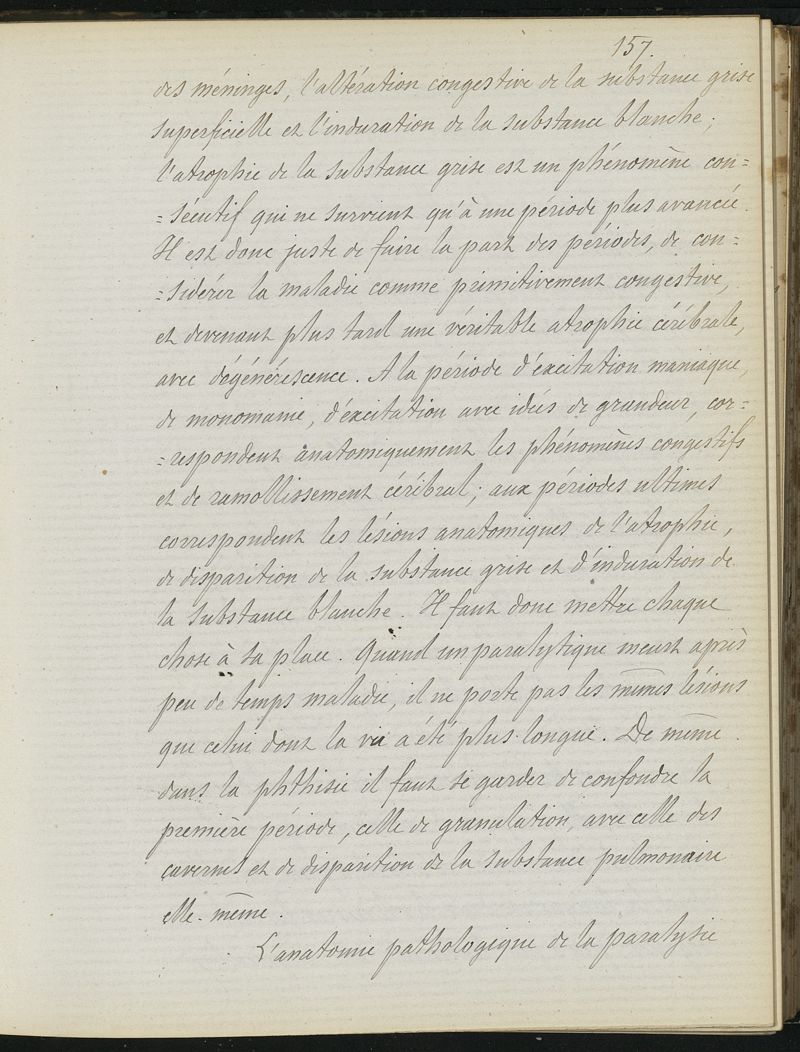 157.
des méninges, l'altération congestive de la substance grise
superficielle et l'induration de la substance blanche ;
l'atrophie de la substance grise est un phénomène con=
=sécutif qui ne survient qu'à une période plus avancée.
Il est donc juste de faire la part des périodes, de con=
=sidérer la maladie comme primitivement congestive,
et devenant plus tard une véritable atrophie cérébrale,
avec dégénérescence. A la période d'excitation maniaque,
de monomanie, d'excitation avec idées de grandeur, cor=
=respondent anatomiquement les phénomènes congestifs
et de ramollissement cérébral ; aux périodes ultimes
correspondent les lésions anatomiques de l'atrophie,
de disparition de la substance grise et d'induration de
la substance blanche. Il faut donc mettre chaque
chose à sa place. Quand un paralytique meurt après
peu de temps maladie, il ne porte pas les mêmes lésions
que celui dont la vie a été plus longue. De même
dans la phthisie il faut se garder de confondre la
première période, celle de granulation, avec celle des
cavernes et de disparition de la substance pulmonaire
elle-même.
L'anatomie pathologique de la paralysie